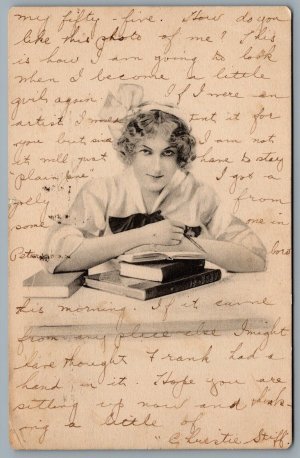 my fifty-five. How do you
like this photo of me? This
is how I am going to look
when I become a little
girl again. If I were an
artist I would paint it for
you but since I am not
it will just have to stay
"plain pne" I got a
jolly from
some one in
Peterboro
this morning. If it came
from any place else I might
have thought Frank had a
hand in it. Hope you are
sitting up now and think-
ing a little of
"Christie Stiff.